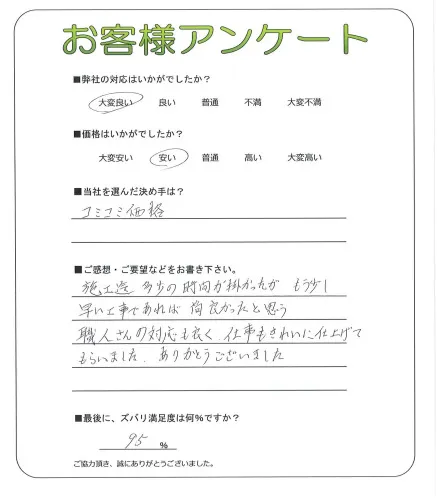 お客様アンケート
■弊社の対応はいかがでしたか？
大変良い 良い 普通 不満 大変不満
■価格はいかがでしたか？
大変安い 安い 普通 高い 大変高い
■当社を選んだ決め手は？
コミコミ価格
■ご感想・ご要望などをお書き下さい。
施工迄 多少の時間が掛かったが もう少し
早い工事であれば 尚良かったと思う
職人さんの対応も良く、仕事もきれいに仕上げて
もらいました. ありがとうございました
■最後に、ズバリ満足度は何％ですか？
95 %
ご協力頂き、誠にありがとうございました。